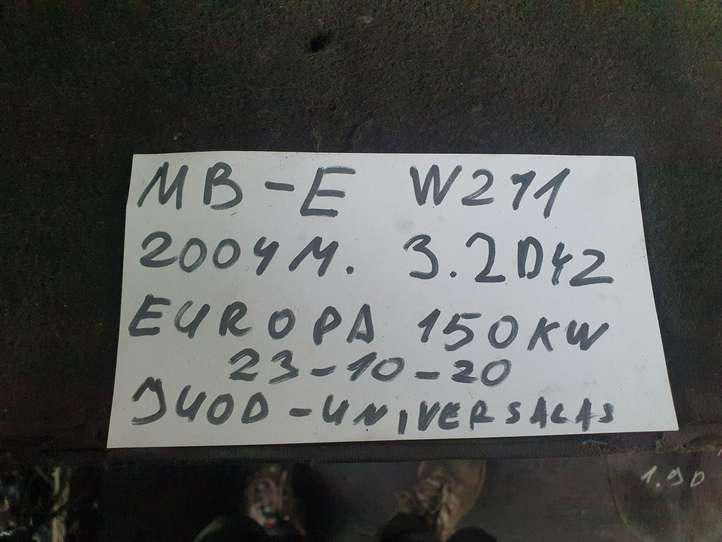 MB-E W211
2004M. 3.2DYZ
EUROPA 150KW
23-10-20
JUOD-UNIVERSALAS
1.9D